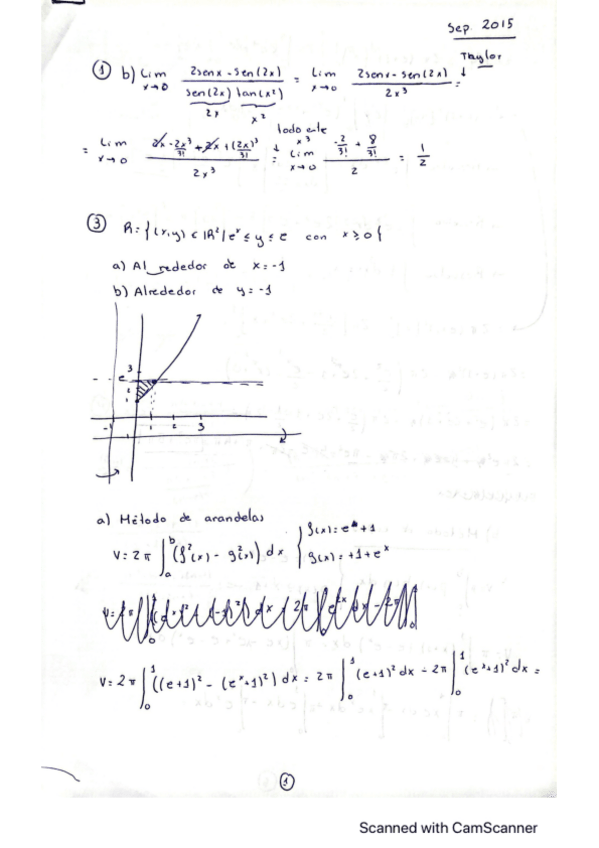 Sep 2015
Taylor
① b) lim x→0 (2senx - sen(2x)) / (sen(2x) tan(x²)) = lim x→0 (2senx - sen(2x)) / (2x³) =
2x x²
todo entre x³
= lim x→0 (2x - 2x³/3! + 2x + (2x)³/3!) / (2x³) = lim x→0 (-2/3! + 8/3!) / 2 = 1/2
③ R={(x,y) ∈ IR² / eˣ ≤ y ≤ e con x ≥ 0}
a) Al rededor de x=-1
b) Alrededor de y=-1
3
e
2
1
-1 1 2 3
-1
a) Método de arandelas
V = 2π ∫ₐᵇ (f²(x) - g²(x)) dx { f(x) = e + 1
g(x) = +1 + eˣ
V = 2π ∫₀¹ ((e+1)² - (eˣ+1)²) dx = 2π ∫₀¹ (e+1)² dx - 2π ∫₀¹ (eˣ+1)² dx =
1
Scanned with CamScanner